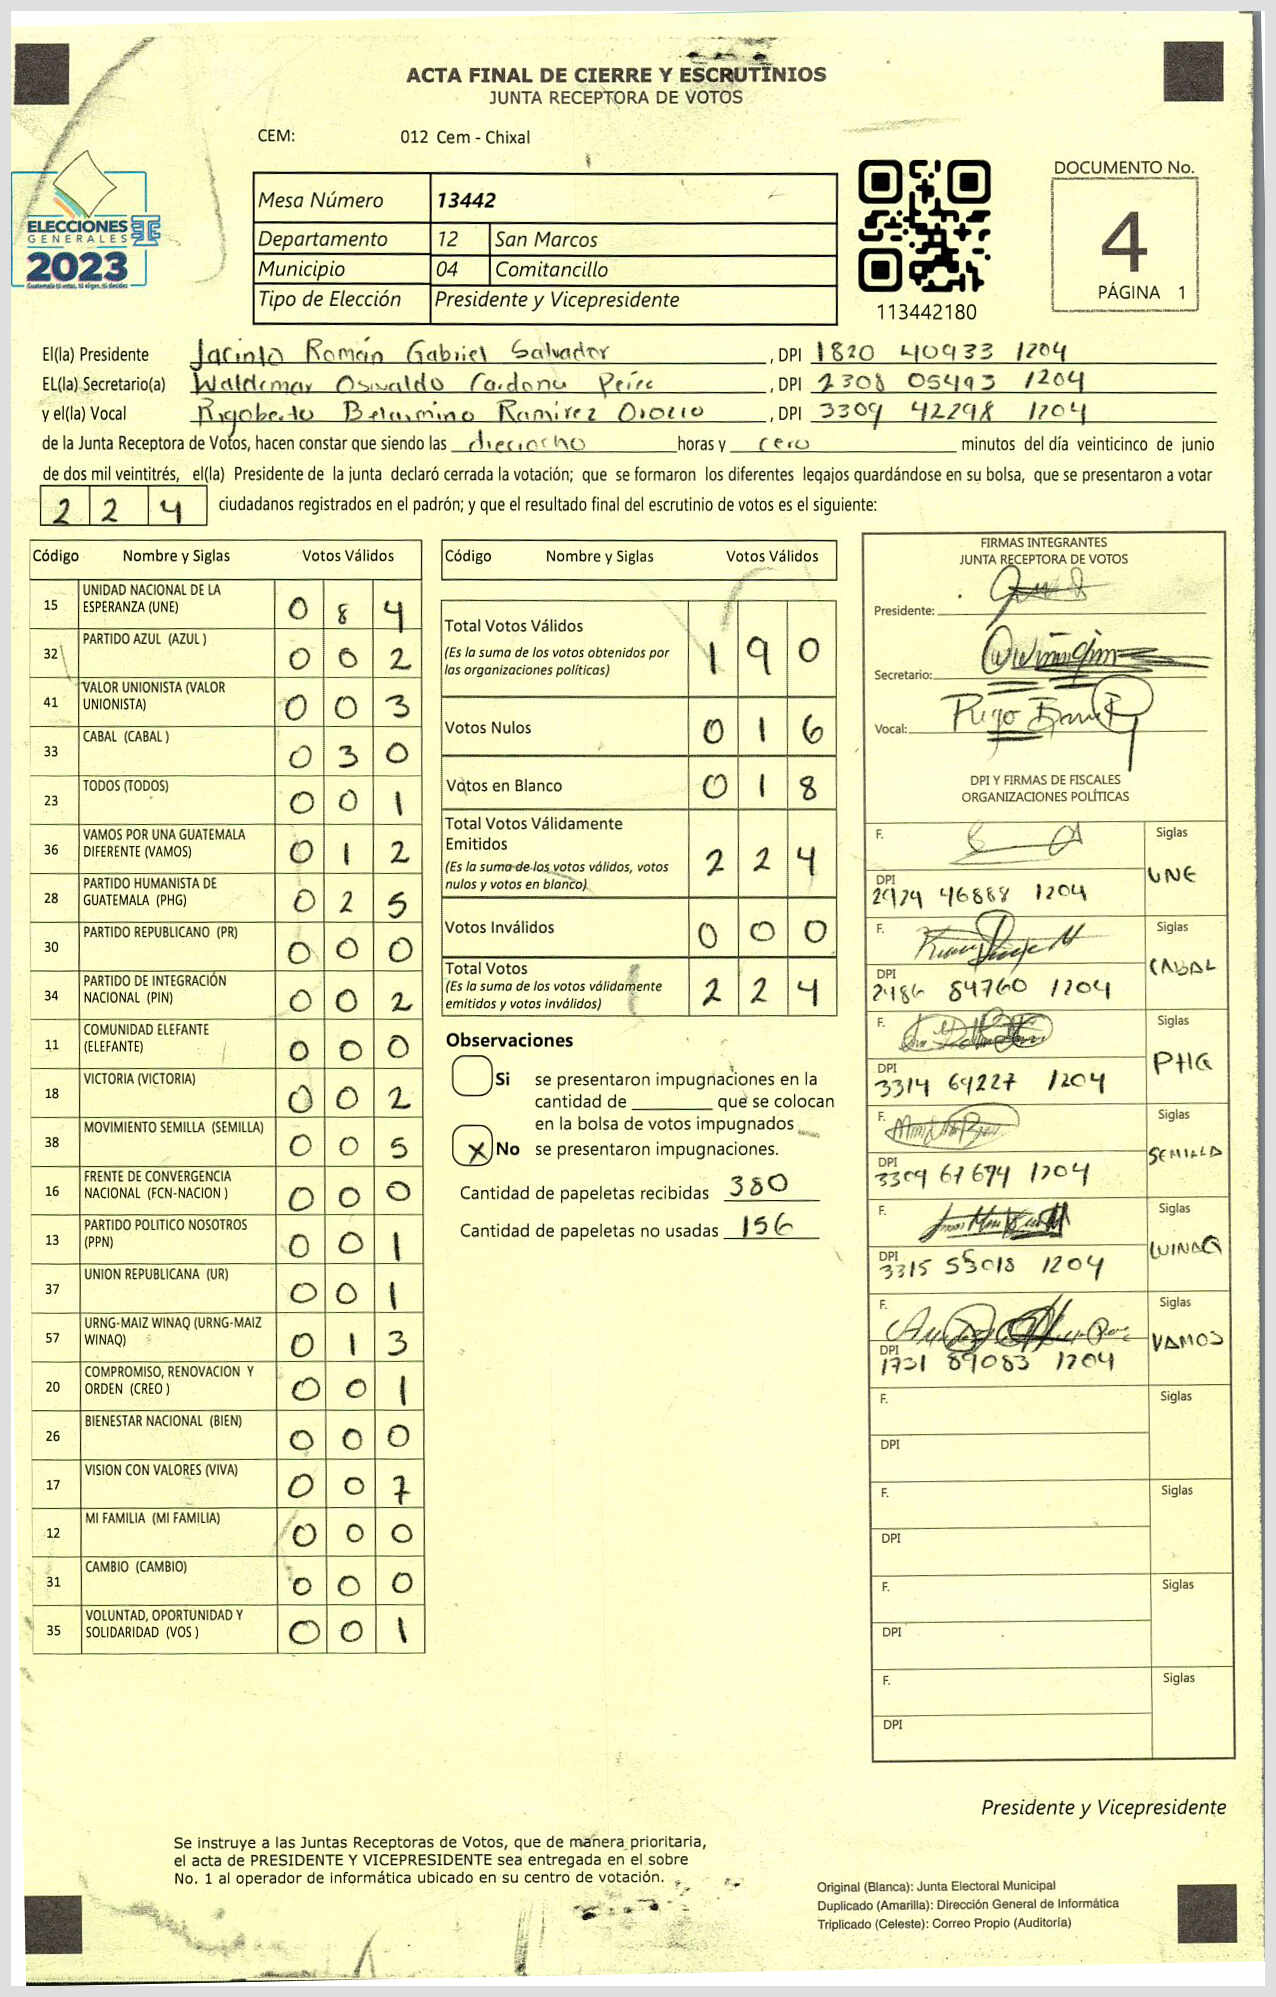 ACTA FINAL DE CIERRE Y ESCRUTINIOS
JUNTA RECEPTORA DE VOTOS
CEM: 012 Cem - Chixal
ELECCIONES
GENERALES
2023
Guatemala tú votas, tú eliges, tú decides
Mesa Número 13442
Departamento 12 San Marcos
Municipio 04 Comitancillo
Tipo de Elección Presidente y Vicepresidente
113442180
DOCUMENTO No.
4
PÁGINA 1
El(la) Presidente Jacinto Román Gabriel Salvador , DPI 1820 40933 1204
EL(la) Secretario(a) Waldemar Oswaldo Cardona , DPI 2308 05493 1204
y el(la) Vocal Rigoberto Belarmino Ramírez Orozco , DPI 3309 42298 1204
de la Junta Receptora de Votos, hacen constar que siendo las dieciocho horas y cero minutos del día veinticinco de junio
de dos mil veintitrés, el(la) Presidente de la junta declaró cerrada la votación; que se formaron los diferentes legajos guardándose en su bolsa, que se presentaron a votar
2 2 4 ciudadanos registrados en el padrón; y que el resultado final del escrutinio de votos es el siguiente:
Código Nombre y Siglas Votos Válidos
15 UNIDAD NACIONAL DE LA ESPERANZA (UNE) 0 8 4
32 PARTIDO AZUL (AZUL ) 0 0 2
41 VALOR UNIONISTA (VALOR UNIONISTA) 0 0 3
33 CABAL (CABAL ) 0 3 0
23 TODOS (TODOS) 0 0 1
36 VAMOS POR UNA GUATEMALA DIFERENTE (VAMOS) 0 1 2
28 PARTIDO HUMANISTA DE GUATEMALA (PHG) 0 2 5
30 PARTIDO REPUBLICANO (PR) 0 0 0
34 PARTIDO DE INTEGRACIÓN NACIONAL (PIN) 0 0 2
11 COMUNIDAD ELEFANTE (ELEFANTE) 0 0 0
18 VICTORIA (VICTORIA) 0 0 2
38 MOVIMIENTO SEMILLA (SEMILLA) 0 0 5
16 FRENTE DE CONVERGENCIA NACIONAL (FCN-NACION ) 0 0 0
13 PARTIDO POLITICO NOSOTROS (PPN) 0 0 1
37 UNION REPUBLICANA (UR) 0 0 1
57 URNG-MAIZ WINAQ (URNG-MAIZ WINAQ) 0 1 3
20 COMPROMISO, RENOVACION Y ORDEN (CREO ) 0 0 1
26 BIENESTAR NACIONAL (BIEN) 0 0 0
17 VISION CON VALORES (VIVA) 0 0 7
12 MI FAMILIA (MI FAMILIA) 0 0 0
31 CAMBIO (CAMBIO) 0 0 0
35 VOLUNTAD, OPORTUNIDAD Y SOLIDARIDAD (VOS ) 0 0 1
Código Nombre y Siglas Votos Válidos
Total Votos Válidos 1 9 0
(Es la suma de los votos obtenidos por
las organizaciones políticas)
Votos Nulos 0 1 6
Votos en Blanco 0 1 8
Total Votos Válidamente
Emitidos 2 2 4
(Es la suma de los votos válidos, votos
nulos y votos en blanco)
Votos Inválidos 0 0 0
Total Votos 2 2 4
(Es la suma de los votos válidamente
emitidos y votos inválidos)
Observaciones
Si se presentaron impugnaciones en la
cantidad de ________ que se colocan
en la bolsa de votos impugnados
X No se presentaron impugnaciones.
Cantidad de papeletas recibidas 380
Cantidad de papeletas no usadas 156
FIRMAS INTEGRANTES
JUNTA RECEPTORA DE VOTOS
Presidente:
Secretario:
Vocal:
DPI Y FIRMAS DE FISCALES
ORGANIZACIONES POLÍTICAS
F. Siglas
DPI UNE
46888 1204
F. Siglas
DPI CABAL
2486 84760 1204
F. Siglas
DPI PHG
3314 69227 1204
F. Siglas
DPI SEMILLA
3309 67674 1204
F. Siglas
DPI WINAQ
3315 53018 1204
F. Siglas
DPI VAMOS
1731 89083 1204
F. Siglas
DPI
F. Siglas
DPI
F. Siglas
DPI
F. Siglas
DPI
Presidente y Vicepresidente
Se instruye a las Juntas Receptoras de Votos, que de manera prioritaria,
el acta de PRESIDENTE Y VICEPRESIDENTE sea entregada en el sobre
No. 1 al operador de informática ubicado en su centro de votación.
Original (Blanca): Junta Electoral Municipal
Duplicado (Amarilla): Dirección General de Informática
Triplicado (Celeste): Correo Propio (Auditoría)